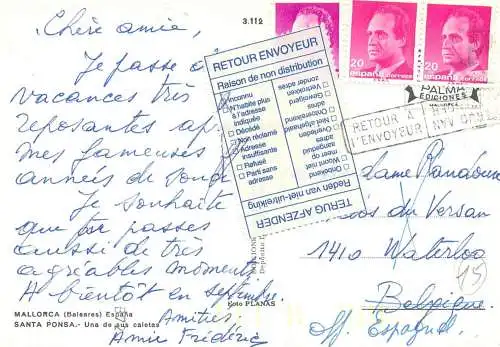 Chère amie,
3.112
Je passe
vacances très
reposantes
mes fameuses
années de
Je souhaite
que tu passes
aussi de très
agréables moments.
A bientôt en septembre.
Amitiés
20
españa correos
20
españa correos
PALMA
EDICIONES
MALLORCA
RETOUR A
L'ENVOYEUR
RETOUR ENVOYEUR
Raison de non distribution
Inconnu
N'habite plus
à l'adresse
indiquée
Décédé
Non réclamé
Adresse
insuffisante
Refusé
Parti sans
adresse
Onbekend
Woont niet
meer op
aangegeven
adres
Overleden
Niet afgehaald
Onvoldoende
adres
Geweigerd
Vertrokken
zonder adres
Reden van niet-uitreiking
TERUG AFZENDER
du Versan
1410 Waterloo
Belgique
Off. Espagnol.
15
Foto PLANAS
MALLORCA (Baleares) España
SANTA PONSA.- Una de sus caletas